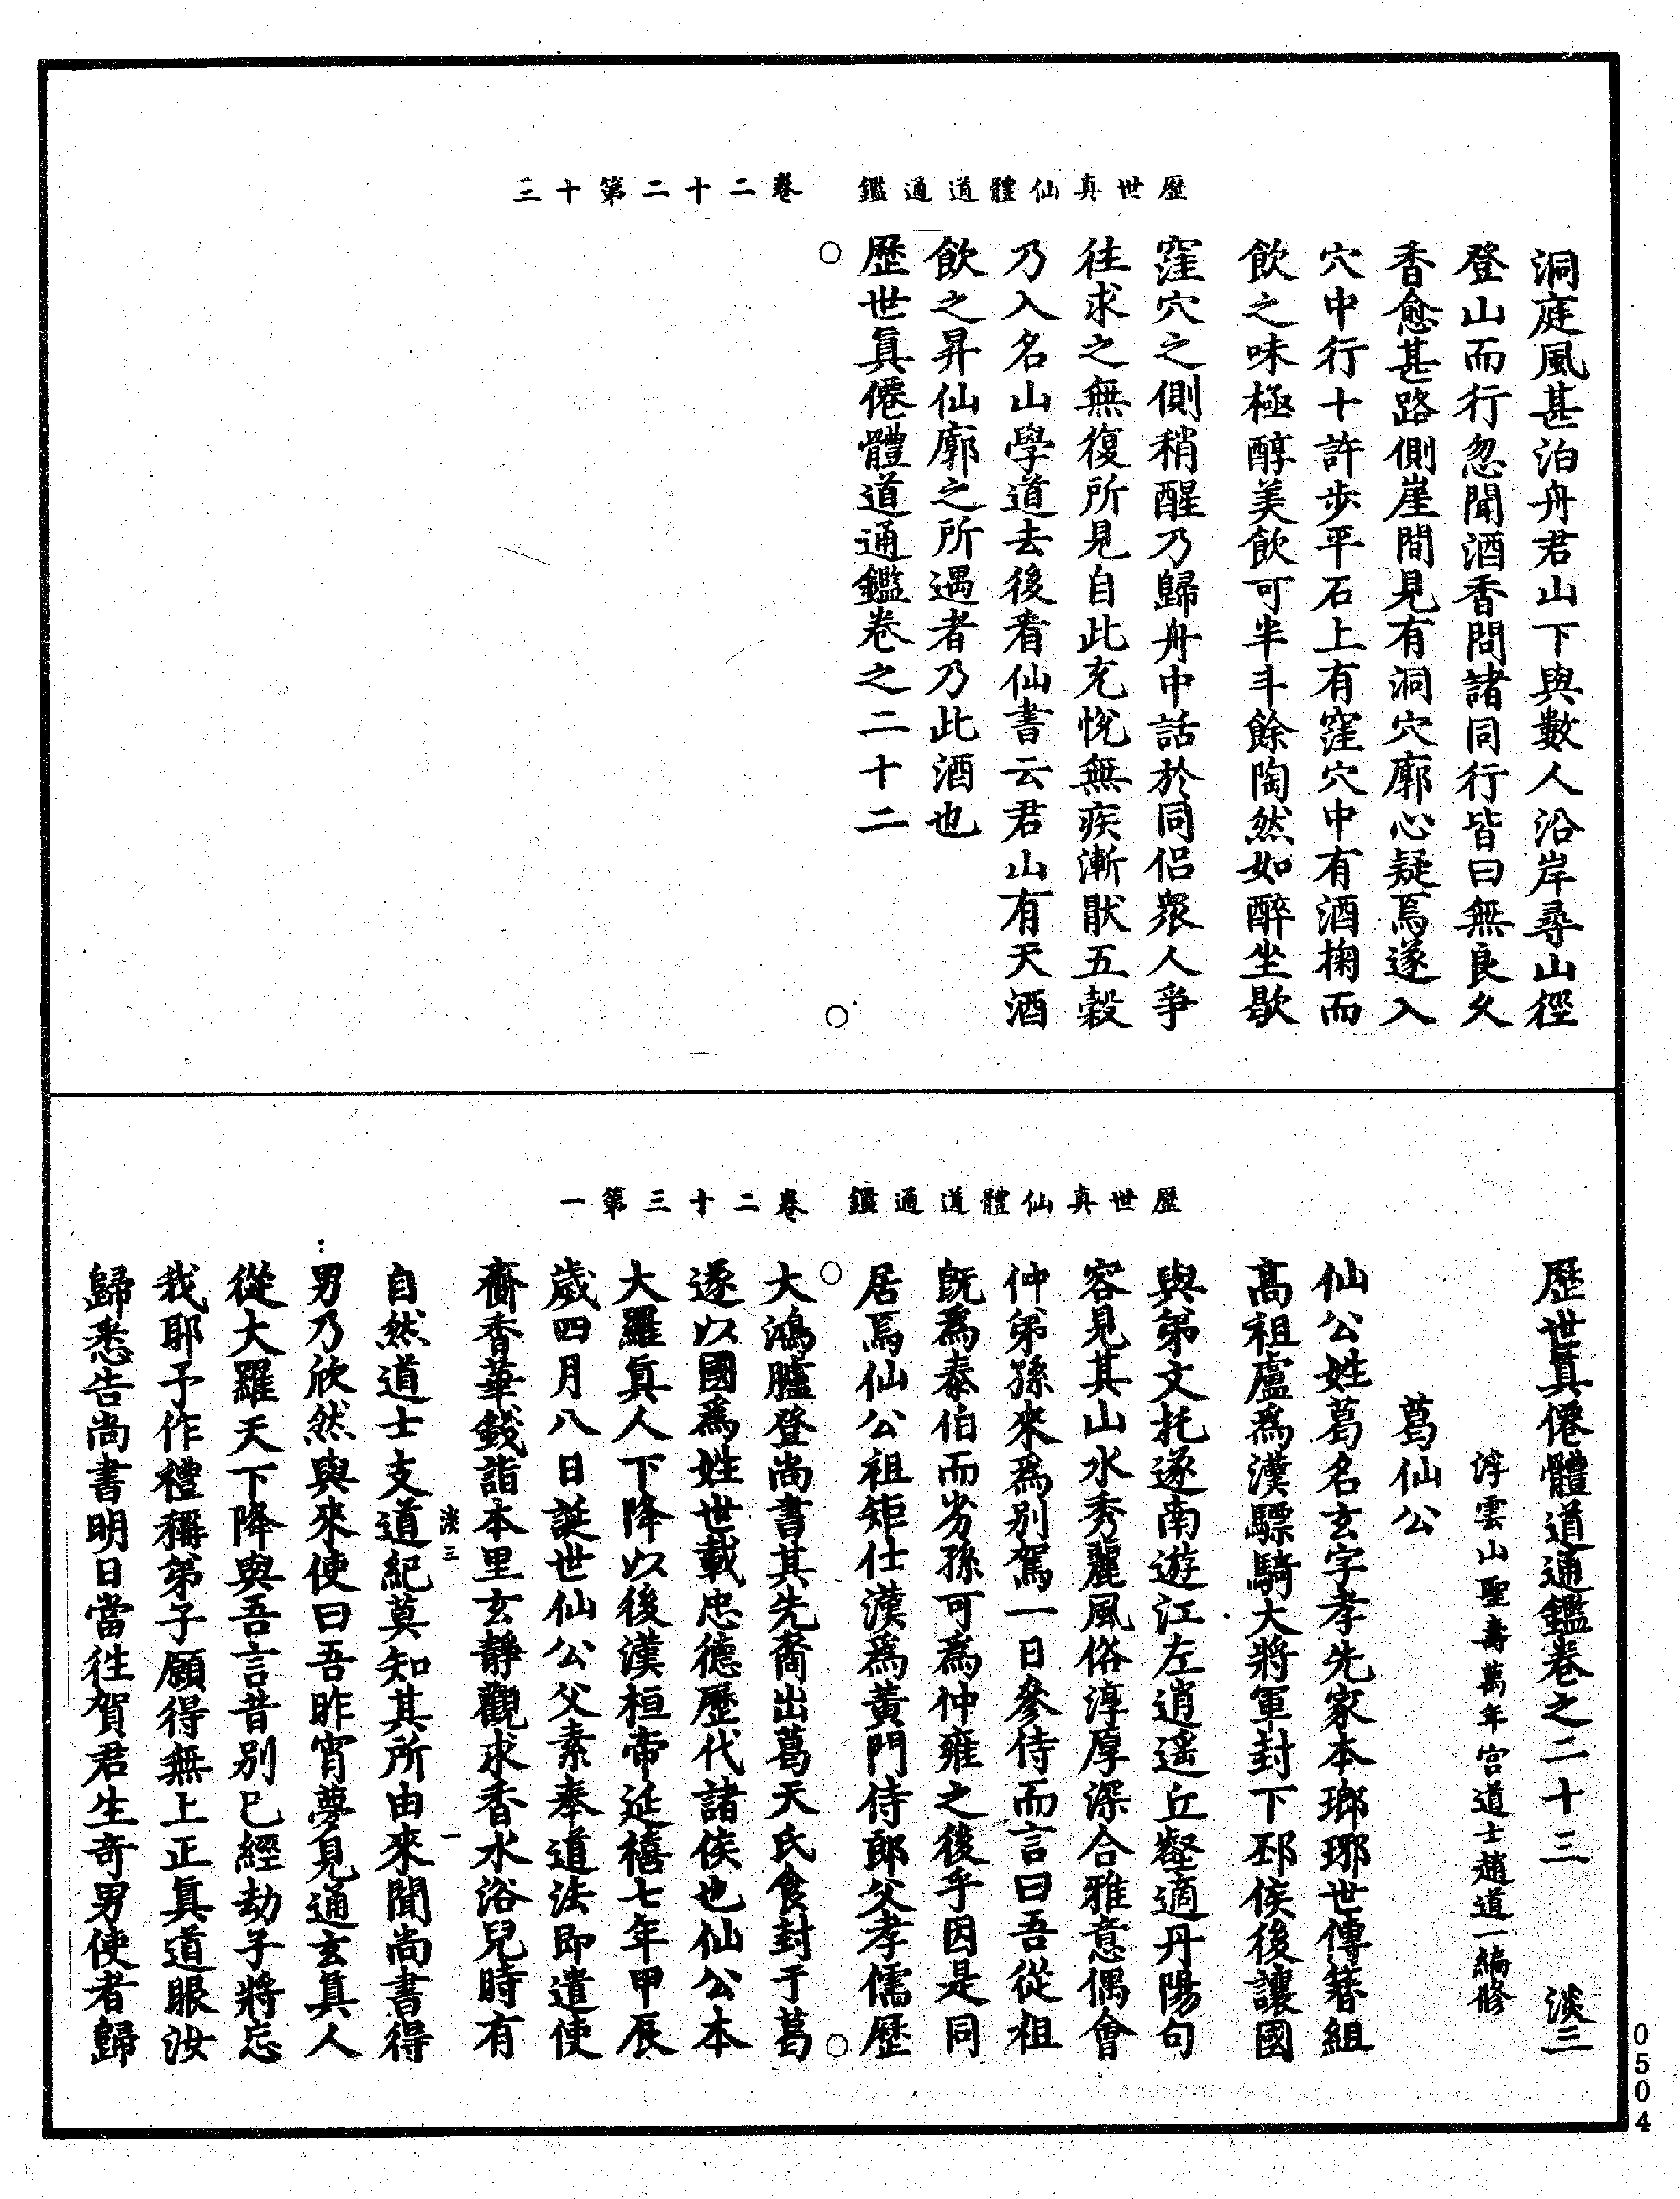 歷世真仙體道通鑑　卷二十二第十三
洞庭風甚泊舟君山下與數人沿岸尋山徑
登山而行忽聞酒香問諸同行皆曰無良久
香愈甚路側崖間見有洞穴廓心疑焉遂入
穴中行十許步平石上有窪穴中有酒掬而
飲之味極醇美飲可半斗餘陶然如醉坐歇
窪穴之側稍醒乃歸舟中話於同侶眾人爭
往求之無復所見自此充悅無疾漸猒五穀
乃入名山學道去後看仙書云君山有天酒
飲之昇仙廓之所遇者乃此酒也
歷世真僊體道通鑑卷之二十二
歷世真仙體道通鑑　卷二十三第一
歷世真僊體道通鑑卷之二十三　淡三
浮雲山聖壽萬年宮道士趙道一編修
葛仙公
仙公姓葛名玄字孝先家本瑯琊世傳簪組
高祖廬為漢驃騎大將軍封下邳侯後讓國
與弟文托遂南遊江左逍遙丘壑適丹陽句
容見其山水秀麗風俗淳厚深合雅意偶會
仲弟孫來為別駕一日參侍而言曰吾從祖
既為泰伯而劣孫可為仲雍之後乎因是同
居焉仙公祖矩仕漢為黃門侍郎父孝儒歷
大鴻臚登尚書其先裔出葛天氏食封于葛
遂以國為姓世載忠德歷代諸侯也仙公本
大羅真人下降以後漢桓帝延禧七年甲辰
歲四月八日誕世仙公父素奉道法即遣使
齎香華錢詣本里玄靜觀求香水浴兒時有
淡三　一
自然道士支道紀莫知其所由來聞尚書得
男乃欣然與來使曰吾昨宵夢見通玄真人
從大羅天下降與吾言昔別已經劫子將忘
我耶予作禮稱弟子願得無上正真道眼汝
歸悉告尚書明日當往賀君生奇男使者歸
0504